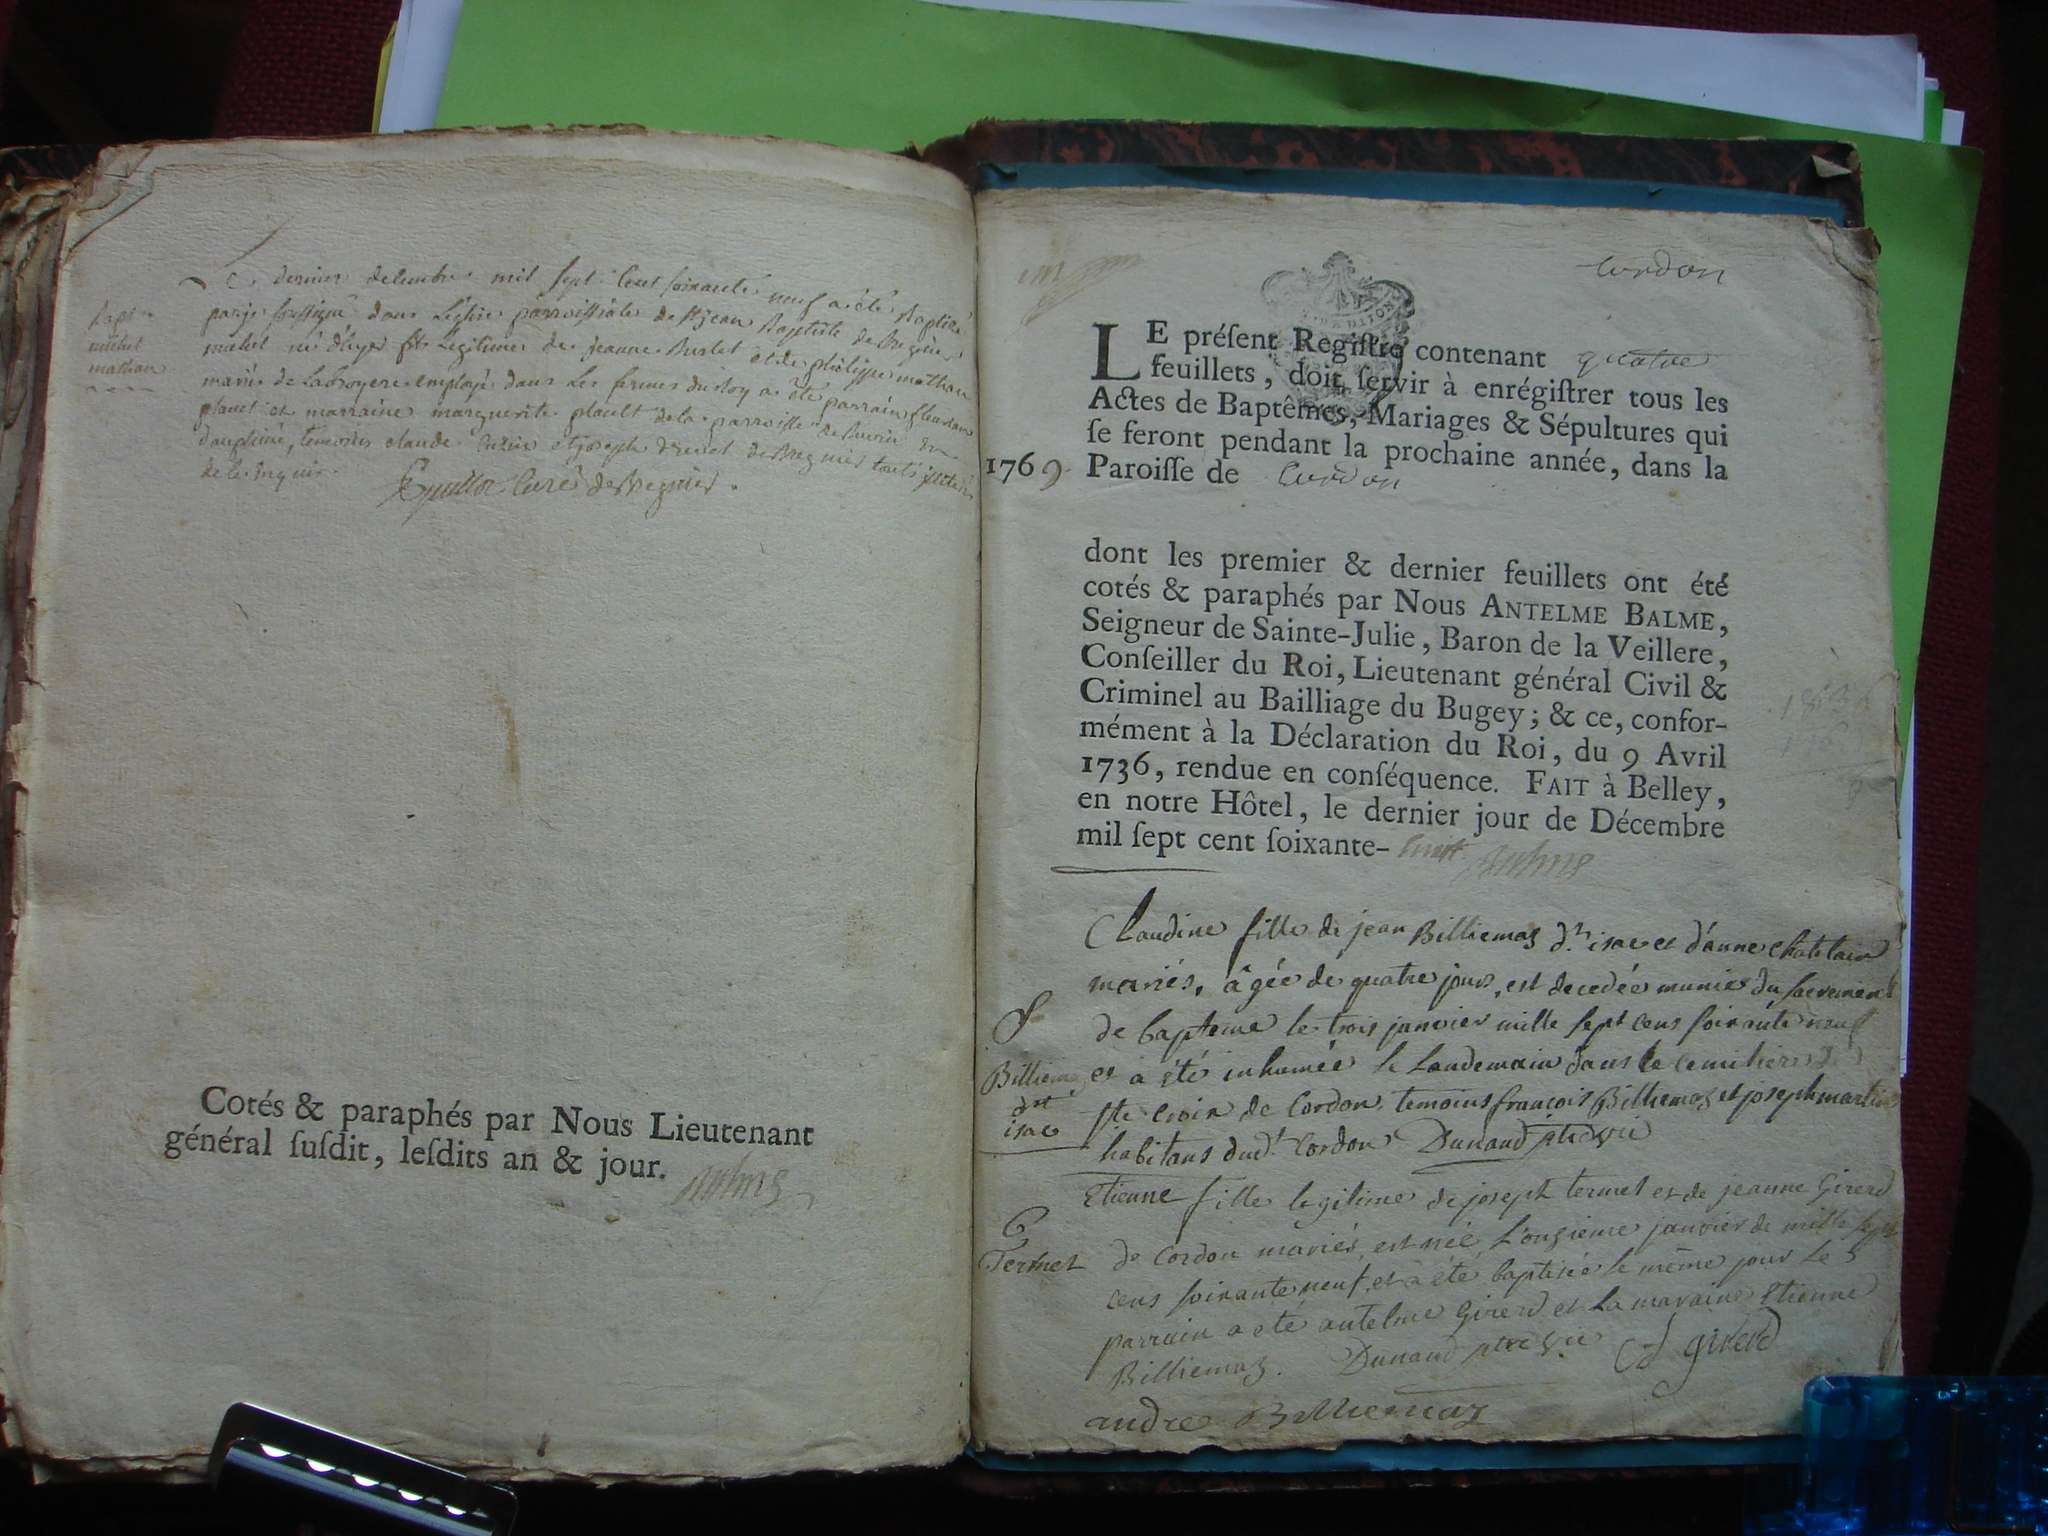 Le dernier decembre mil sept cent soixante neuf a été Baptisé
par je soussigné dans l'eglise parroissiale de St jean Baptiste de Bregnier
michel né d'hyer fils Legitime de jeanne Burlet et de philippe mathan
mariés de employé dans les fermes du Roy a été parrain
planet et marraine margueritte de la parroisse de en
dauphiné, temoins claude et joseph de Bregnier
de le enquis.
bapt
michel
mathan
curé de Bregnier.
Cotés & paraphés par Nous Lieutenant
général ſuſdit, leſdits an & jour.
Cordon
LE préſent Regiſtre contenant quatre
feuillets, doit ſervir à enrégiſtrer tous les
Actes de Baptêmes, Mariages & Sépultures qui
ſe feront pendant la prochaine année, dans la
1769. Paroiſſe de Cordon
dont les premier & dernier feuillets ont été
cotés & paraphés par Nous ANTELME BALME,
Seigneur de Sainte-Julie, Baron de la Veillere,
Conſeiller du Roi, Lieutenant général Civil &
Criminel au Bailliage du Bugey; & ce, confor-
mément à la Déclaration du Roi, du 9 Avril
1736, rendue en conſéquence. FAIT à Belley,
en notre Hôtel, le dernier jour de Décembre
mil ſept cent ſoixante- huit
Claudine fille de jean Billiemaz dt isac et d'anne chatelain
mariés, âgée de quatre jours, est decedée munie du sacrement
de bapteme le trois janvier mille sept cens soixante neuf
et a été inhumée le landemain dans le cemitiere de
ste croix de Cordon, temoins françois Billiemaz et joseph martin
habitans dud.t Cordon Dunand ptre vic
S
Billiemaz
dt
isac
Etienne fille legitime de joseph termet et de jeanne Girerd
de Cordon mariés, est née l'onzieme janvier de mille sept
cens soixante neuf, et a été baptisée le même jour le
parrain a été antelme Girerd et la maraine Etienne
Billiemaz. Dunand ptre vic girerd
andre Billiemaz
Termet